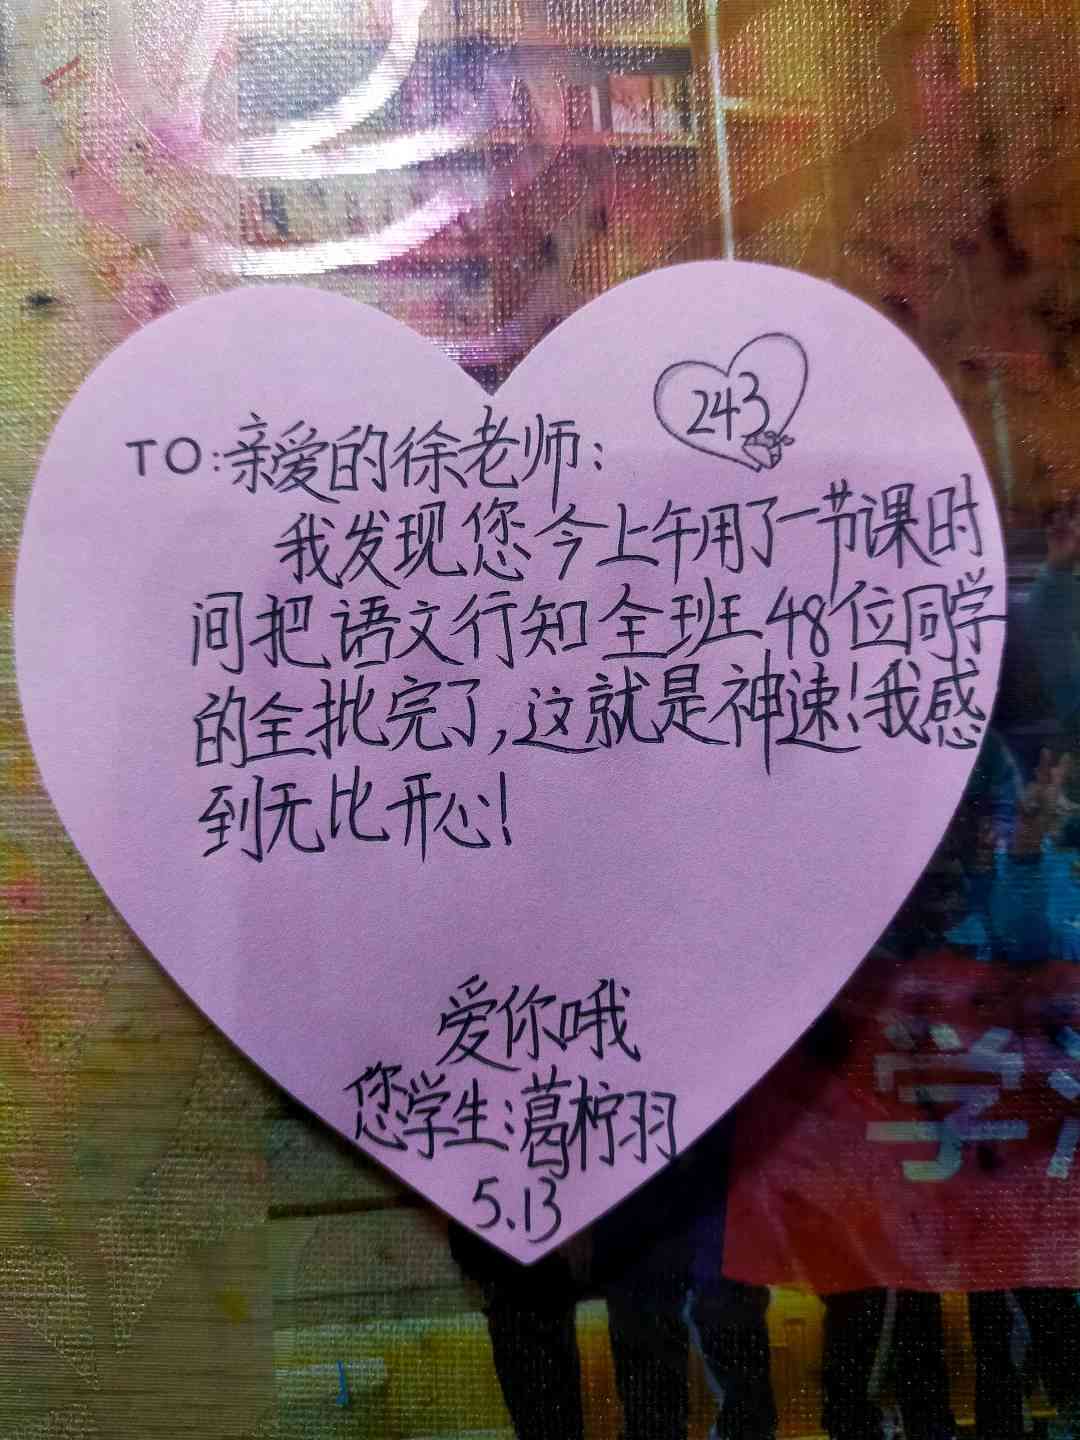 243
TO:亲爱的徐老师:
我发现您今上午用了一节课时
间把语文行知全班48位同学
的全批完了,这就是神速!我感
到无比开心!
爱你哦
您学生:葛柠羽
5.13
学